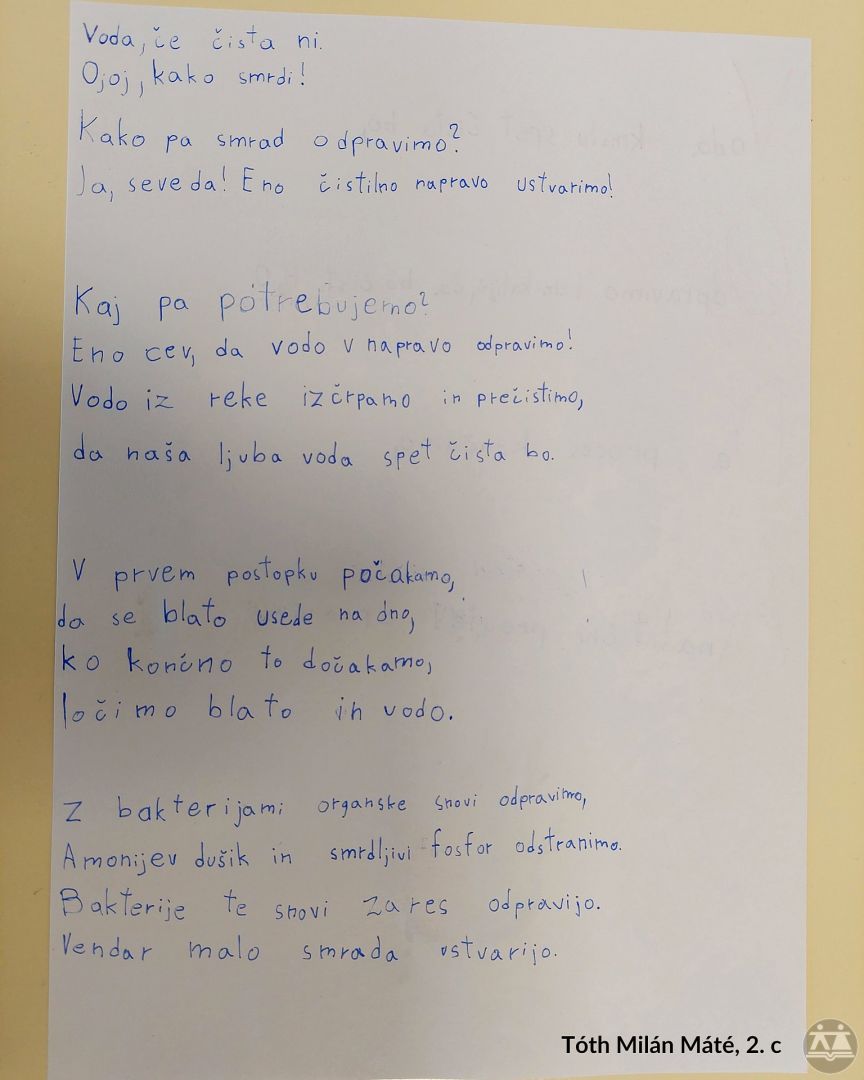 Voda, če čista ni.
Ojoj, kako smrdi!
Kako pa smrad odpravimo?
Ja, seveda! Eno čistilno napravo ustvarimo!
Kaj pa potrebujemo?
Eno cev, da vodo v napravo odpravimo!
Vodo iz reke izčrpamo in prečistimo,
da naša ljuba voda spet čista bo.
V prvem postopku počakamo,
da se blato usede na dno,
ko končno to dočakamo,
ločimo blato in vodo.
Z bakterijami organske snovi odpravimo,
Amonijev dušik in smrdljivi fosfor odstranimo.
Bakterije te snovi zares odpravijo.
Vendar malo smrada ustvarijo.
Tóth Milán Máté, 2. c